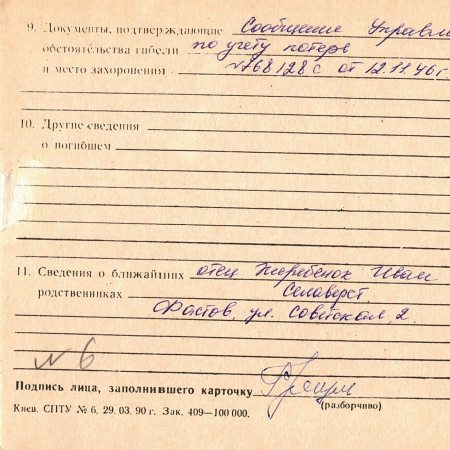 9. Документы, подтверждающие Сообщение Управл
обстоятельства гибели по учету потерь
и место захоронения №768128с от 12.11.46 г
10. Другие сведения
о погибшем
11. Сведения о ближайших отец Жеребенок Иван
родственниках Селаверст.
Фастов, ул. Советская, 2.
№ 6
Подпись лица, заполнившего карточку
(разборчиво)
Киев. СПТУ № 6. 29. 03. 90 г. Зак. 409—100 000.